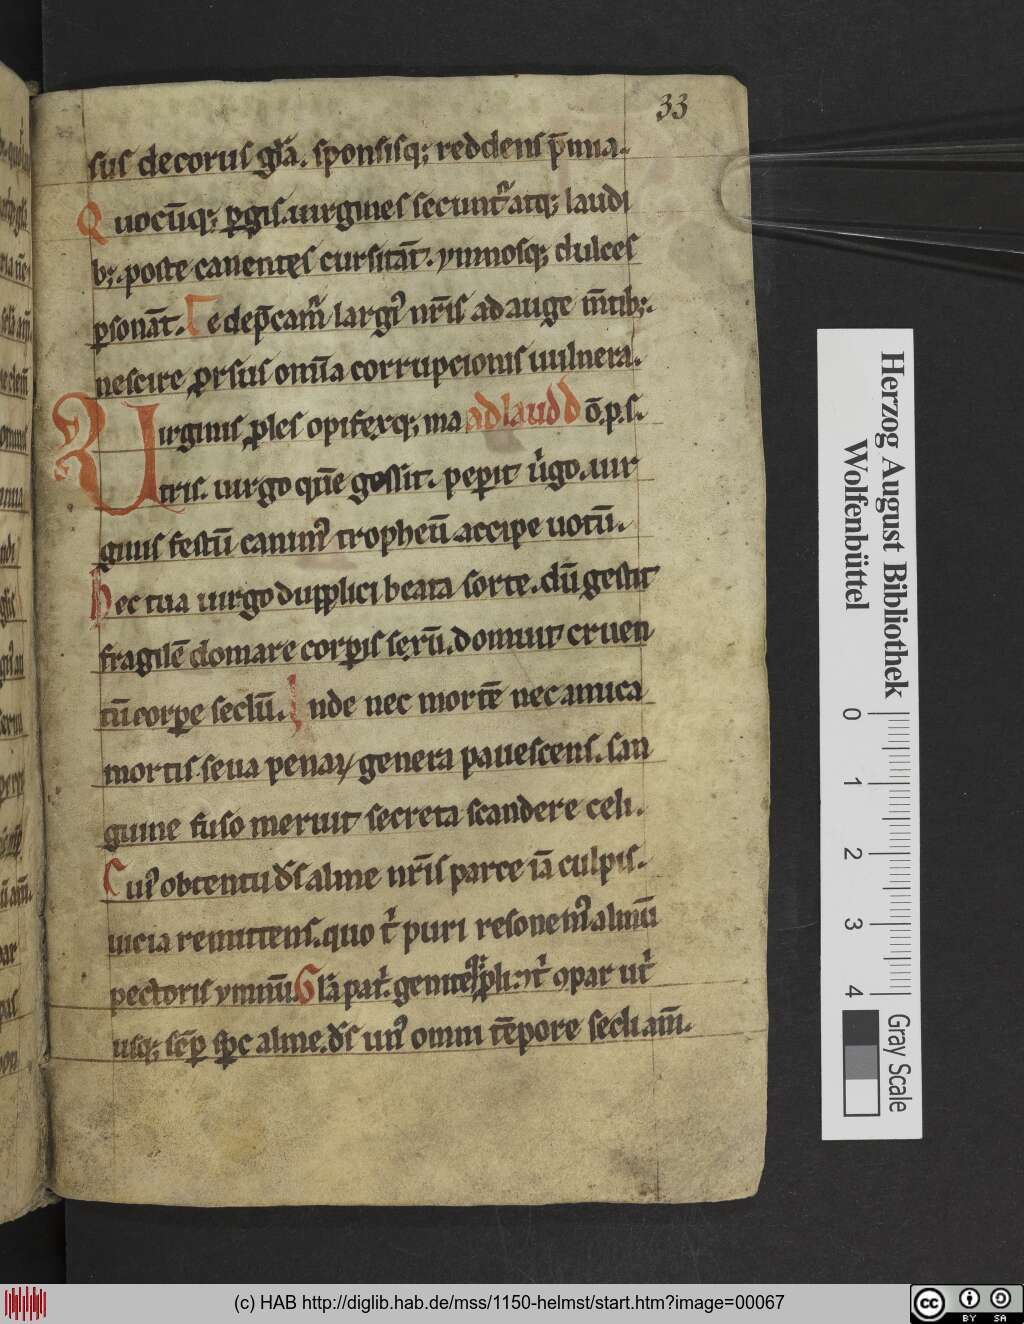 33
sus decorus gl̄a. sponsisq; reddens p̄mia.
Quocūq; ꝑgis. uirgines secunt᷑ atq; laudi
b;. poste canentes cursitāt. ymnosq; dulces
ꝑsonāt. Te dep̄cam᷑ largi᷑ nr̄is adauge m̄tib;.
nescire ꝓrsus om̄ia corrupcionis uulnera.
Uirginis ꝓles opifexq; ma ad laud d ō.p.s.
tris. uirgo quē gessit. peꝑit u̍go. uir
ginis festū canim᷒ tropheū. accipe uotū.
Hec tua uirgo dupplici beata sorte. dū gestit
fragilē domare corꝑis sexū. domuit cruen
tū corpꝑe seclū. Inde nec mortē nec amica
mortis. seua penaꝝ genera pauescens. san
guine fuso meruit secreta scandere celi.
Cui᷒ obtentu d̄s alme nr̄is parce iā culpis.
uicia remittens. quo t̍ puri resonem᷒ almū
pectoris ymnū. Gl̄a pat̍. geniteq; ꝓli. ⁊ t̍ ꝯpar ut̍
usq; sēꝑ sp̄c alme. d̄s un᷒ omni tēpore secli. am̄.
Herzog August Bibliothek
Wolfenbüttel
0 1 2 3 4
Gray Scale
(c) HAB http://diglib.hab.de/mss/1150-helmst/start.htm?image=00067
cc BY SA